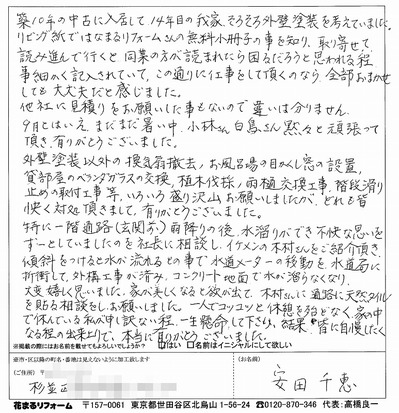 築10年の中古に入居して14年目の我家、そろそろ外壁塗装を考えていました。
リビング紙ではなまるリフォームさんの無料小冊子の事を知り、取り寄せて
読み進んで行くと同業の方が読まれたら困るだろうと思われる程
事細かく記入されていて、この通りに仕事をして頂くのなら、全部おまかせ
しても大丈夫だと感じました。
他社に見積りをお願いした事もないので違いは分りません。
9月とはいえ、まだまだ暑い中、小林さん白鳥さん黙々と頑張って
頂き、有りがとうございました。
外壁塗装以外の換気扇撤去、お風呂場の目かくし窓の設置、
貸部屋のベランダガラスの交換、植木伐採、雨樋交換工事、階段滑り
止めの取付工事等、いろいろ盛り沢山お願いしましたが、どれも皆
快く対処頂きまして、有りがとうございました。
特に一階通路(玄関前)雨降りの後、水溜りができ不快な思いを
ずーとしていましたのを社長に相談し、イケメンの木村さんをご紹介頂き
傾斜をつけると水が流れるとの事で水道メーターの移動を水道局に
折衝して、外構工事が済み、コンクリート地面で水が溜らなくなり、
大変嬉しく思いました。家が美しくなると欲が出て、木村さんに通路に天然タイル
を貼る相談をしお願いしました。一人でコツコツと休憩を殆どなく、家の中
で休んでいる私が申し訳ない程、一生懸命して下さり、結果、皆に自慢したく
なる程の出来上りで、本当に有りがとうございました。
※掲載の際にはお名前を載せてもよろしいでしょうか? はい □名前はイニシャルにして欲しい
※市・区以降の町名・番地は見えないように加工致します
(ご住所) 〒
杉並区
(お名前)
安田 千恵
花まるリフォーム 〒157-0061 東京都世田谷区北烏山1-56-24 ☎0120-870-346 代表:高橋良一